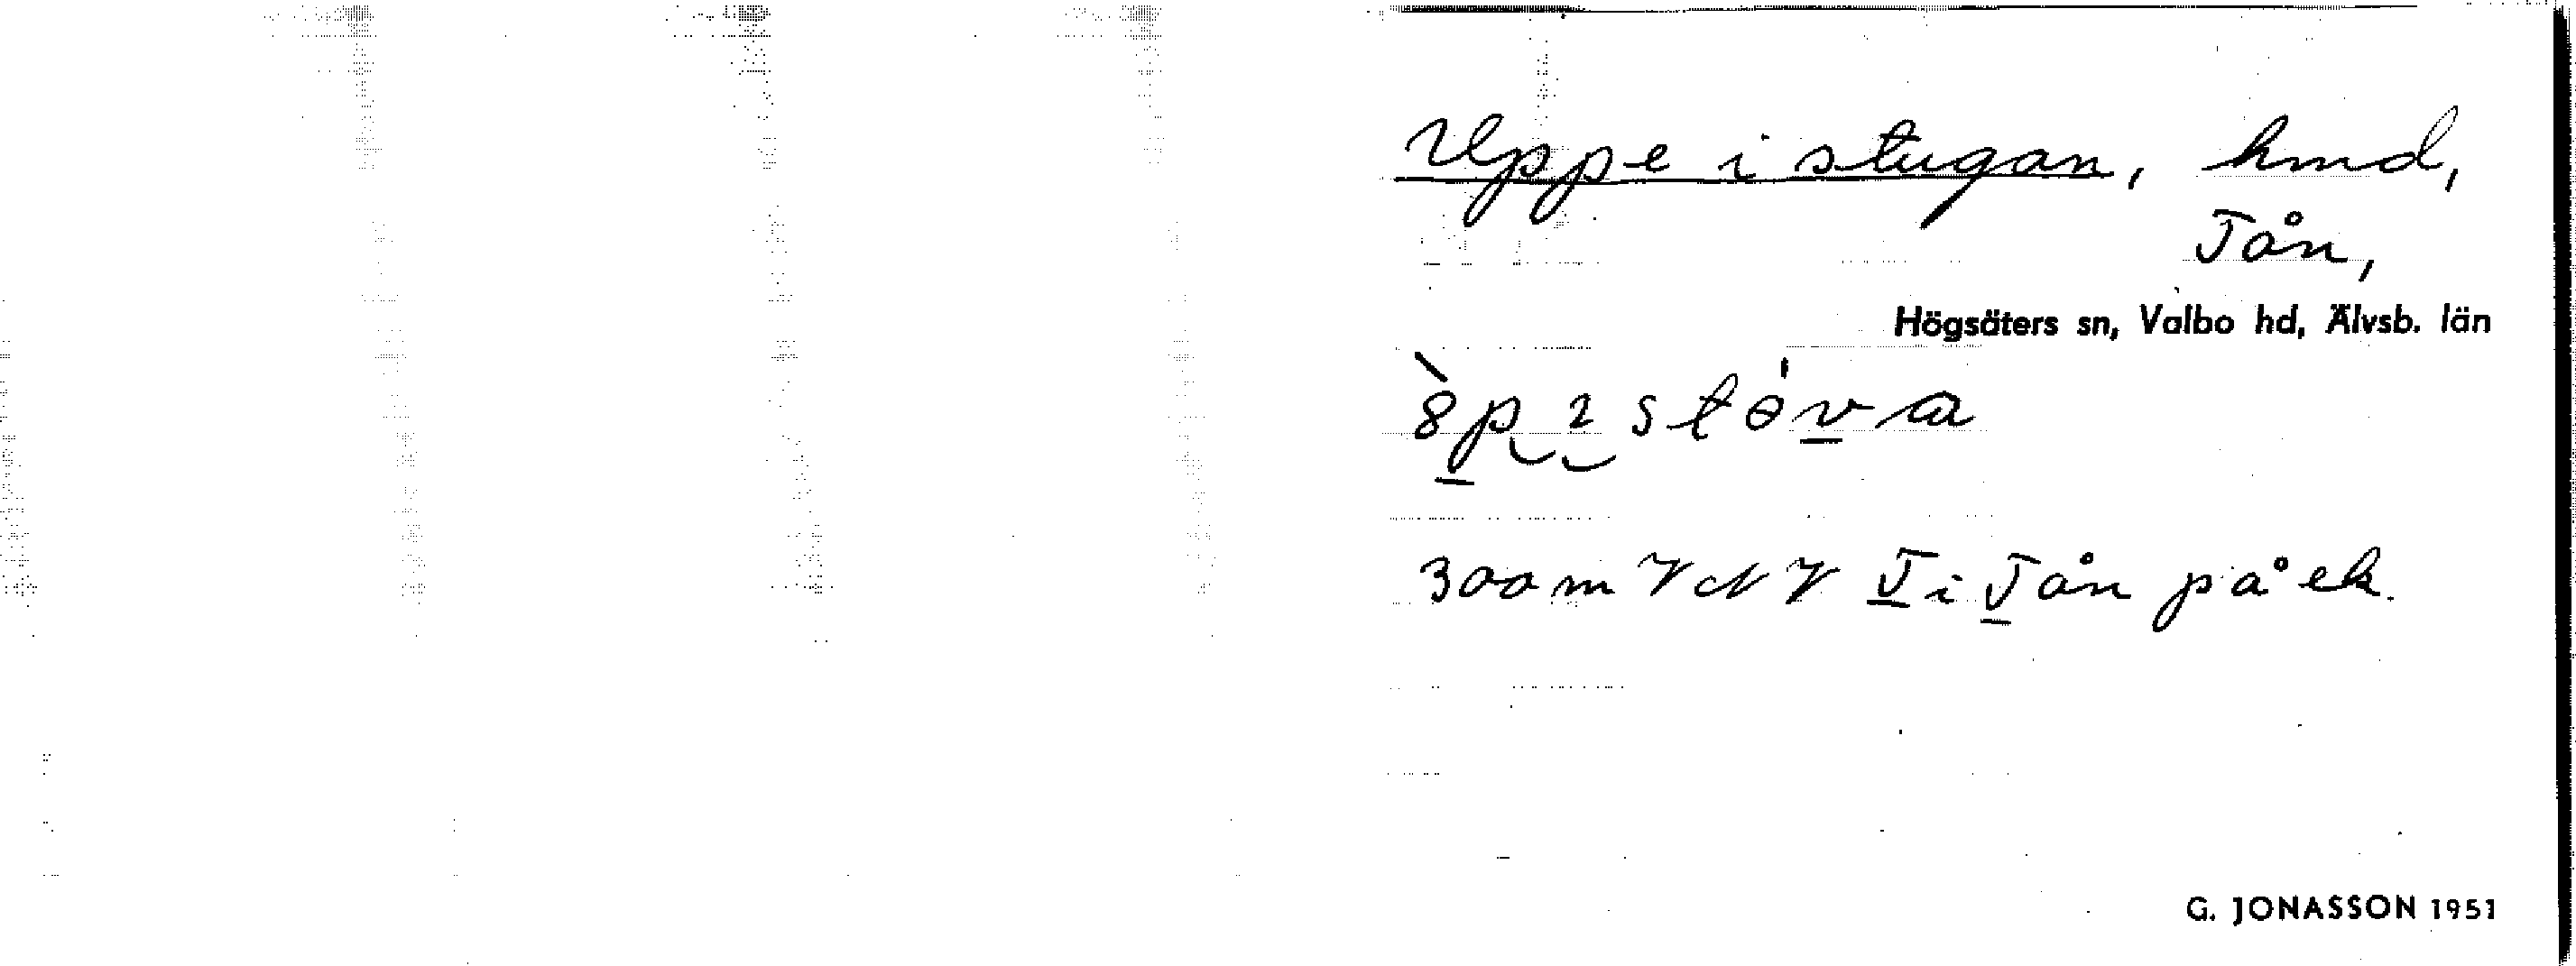 Uppe i stugan, hmd,
Tån,
Högsäters sn, Valbo hd, Älvsb. län
300 m VNV T i Tån på ek.
G. JONASSON 1951